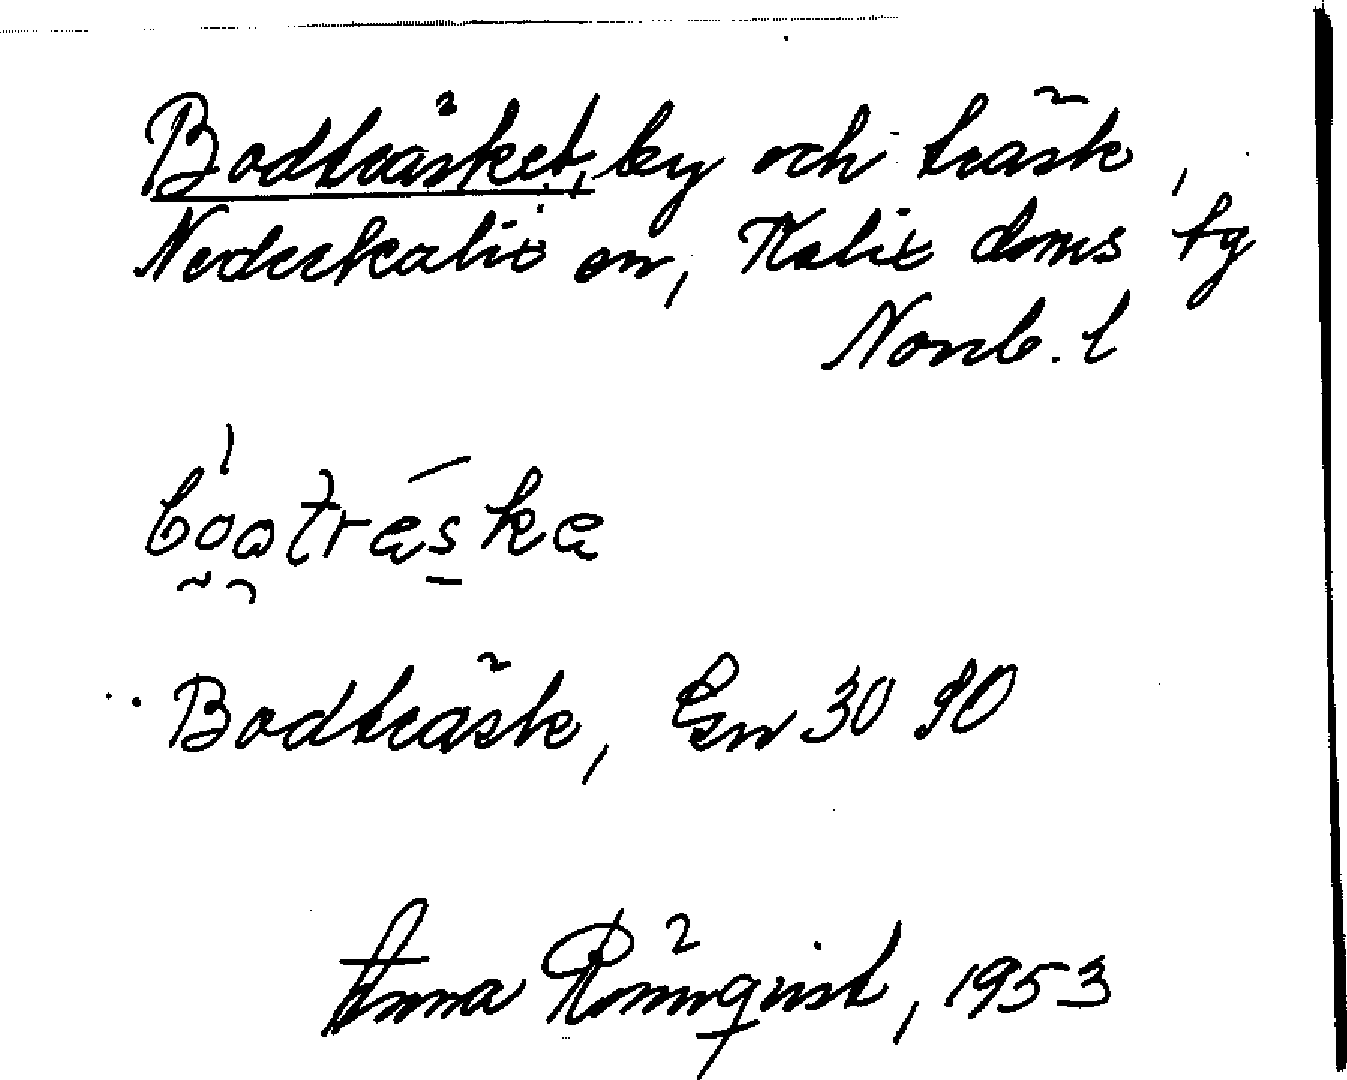 Bodträsket, by och träsk,
Nederkalix sn, Kalix doms fg
Norrb. l
Bodträsk, Gsn 30 SO
Anna Rönnqvist, 1953